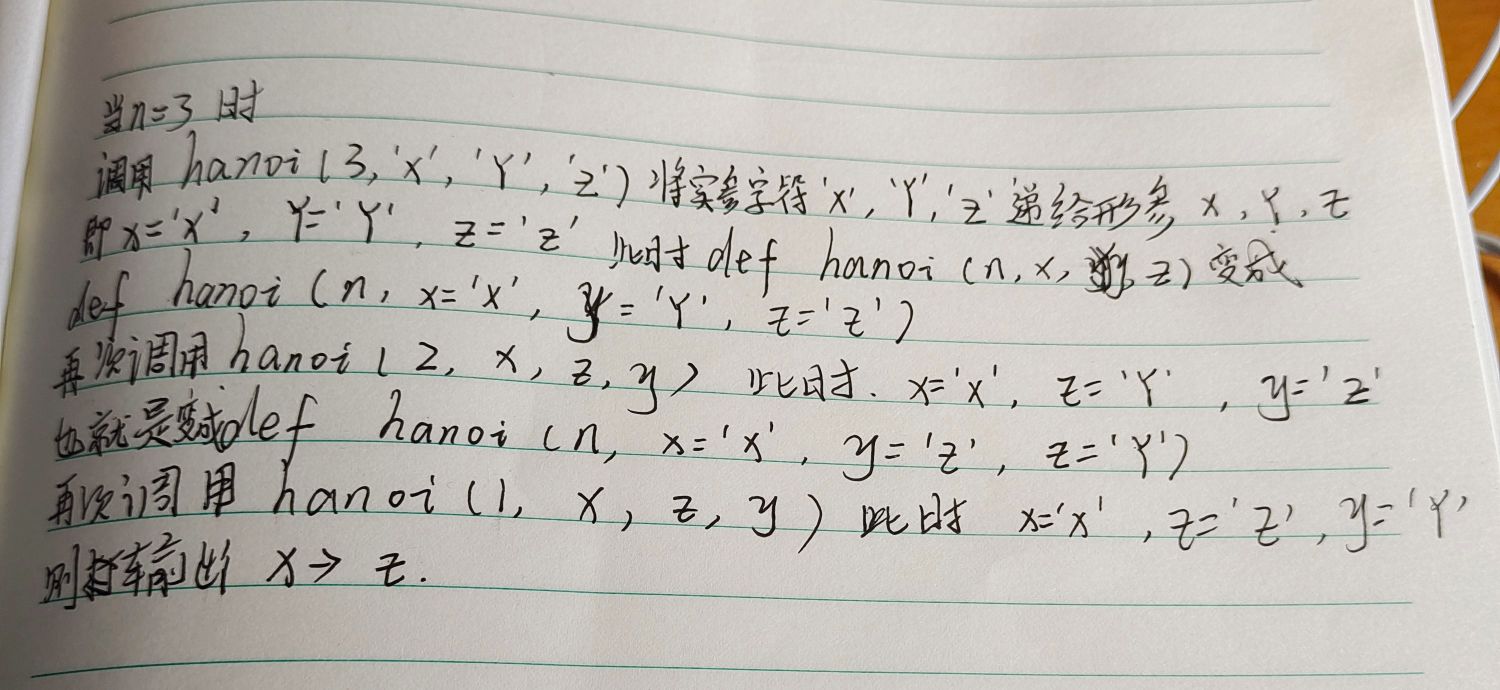 当n=3 时
调用 hanoi (3, 'X', 'Y', 'Z') 将实参字符'X', 'Y', 'Z'递给形参 x, Y, z
即 x='X', Y='Y', z='Z' 此时 def hanoi (n, x, y, z) 变成
def hanoi (n, x='X', y='Y', z='Z')
再次调用 hanoi (2, x, z, y) 此时. x='X', z='Y', y='Z'
也就是变成def hanoi (n, x='X', y='Z', z='Y')
再次调用 hanoi (1, x, z, y) 此时 x='X', z='Z', y='Y'
则输出 x→ z.